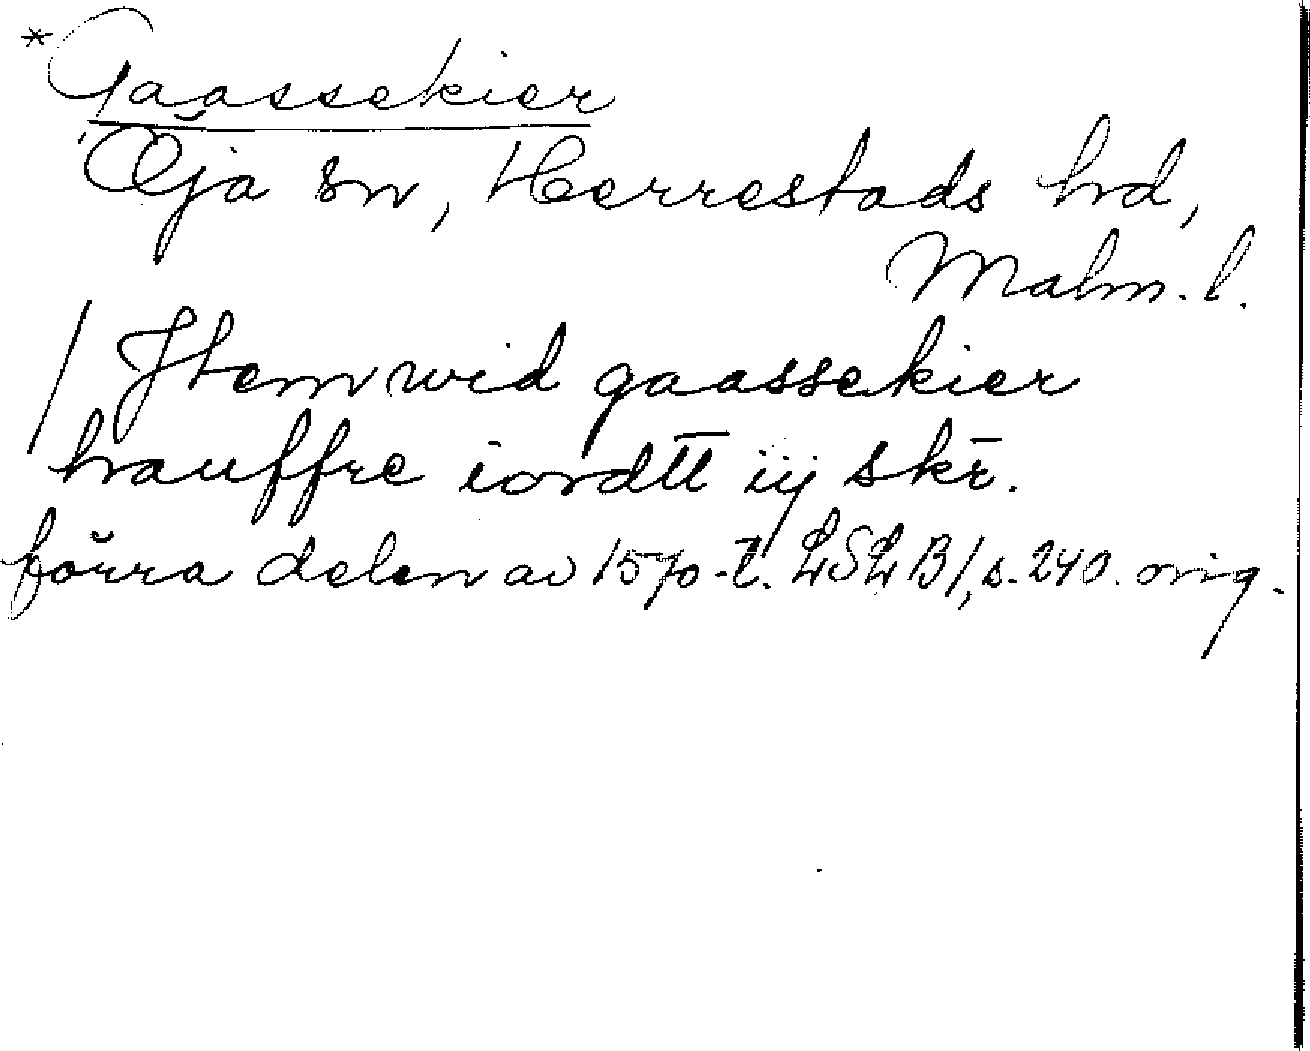 *Gaassekier
Öja sn, Herrestads hrd,
Malm. l.
/ Jtem wid gaassekier
hauffre iordtt iij skr̄.
förra delen av 1570-t. LSLB 1, s. 240. orig.